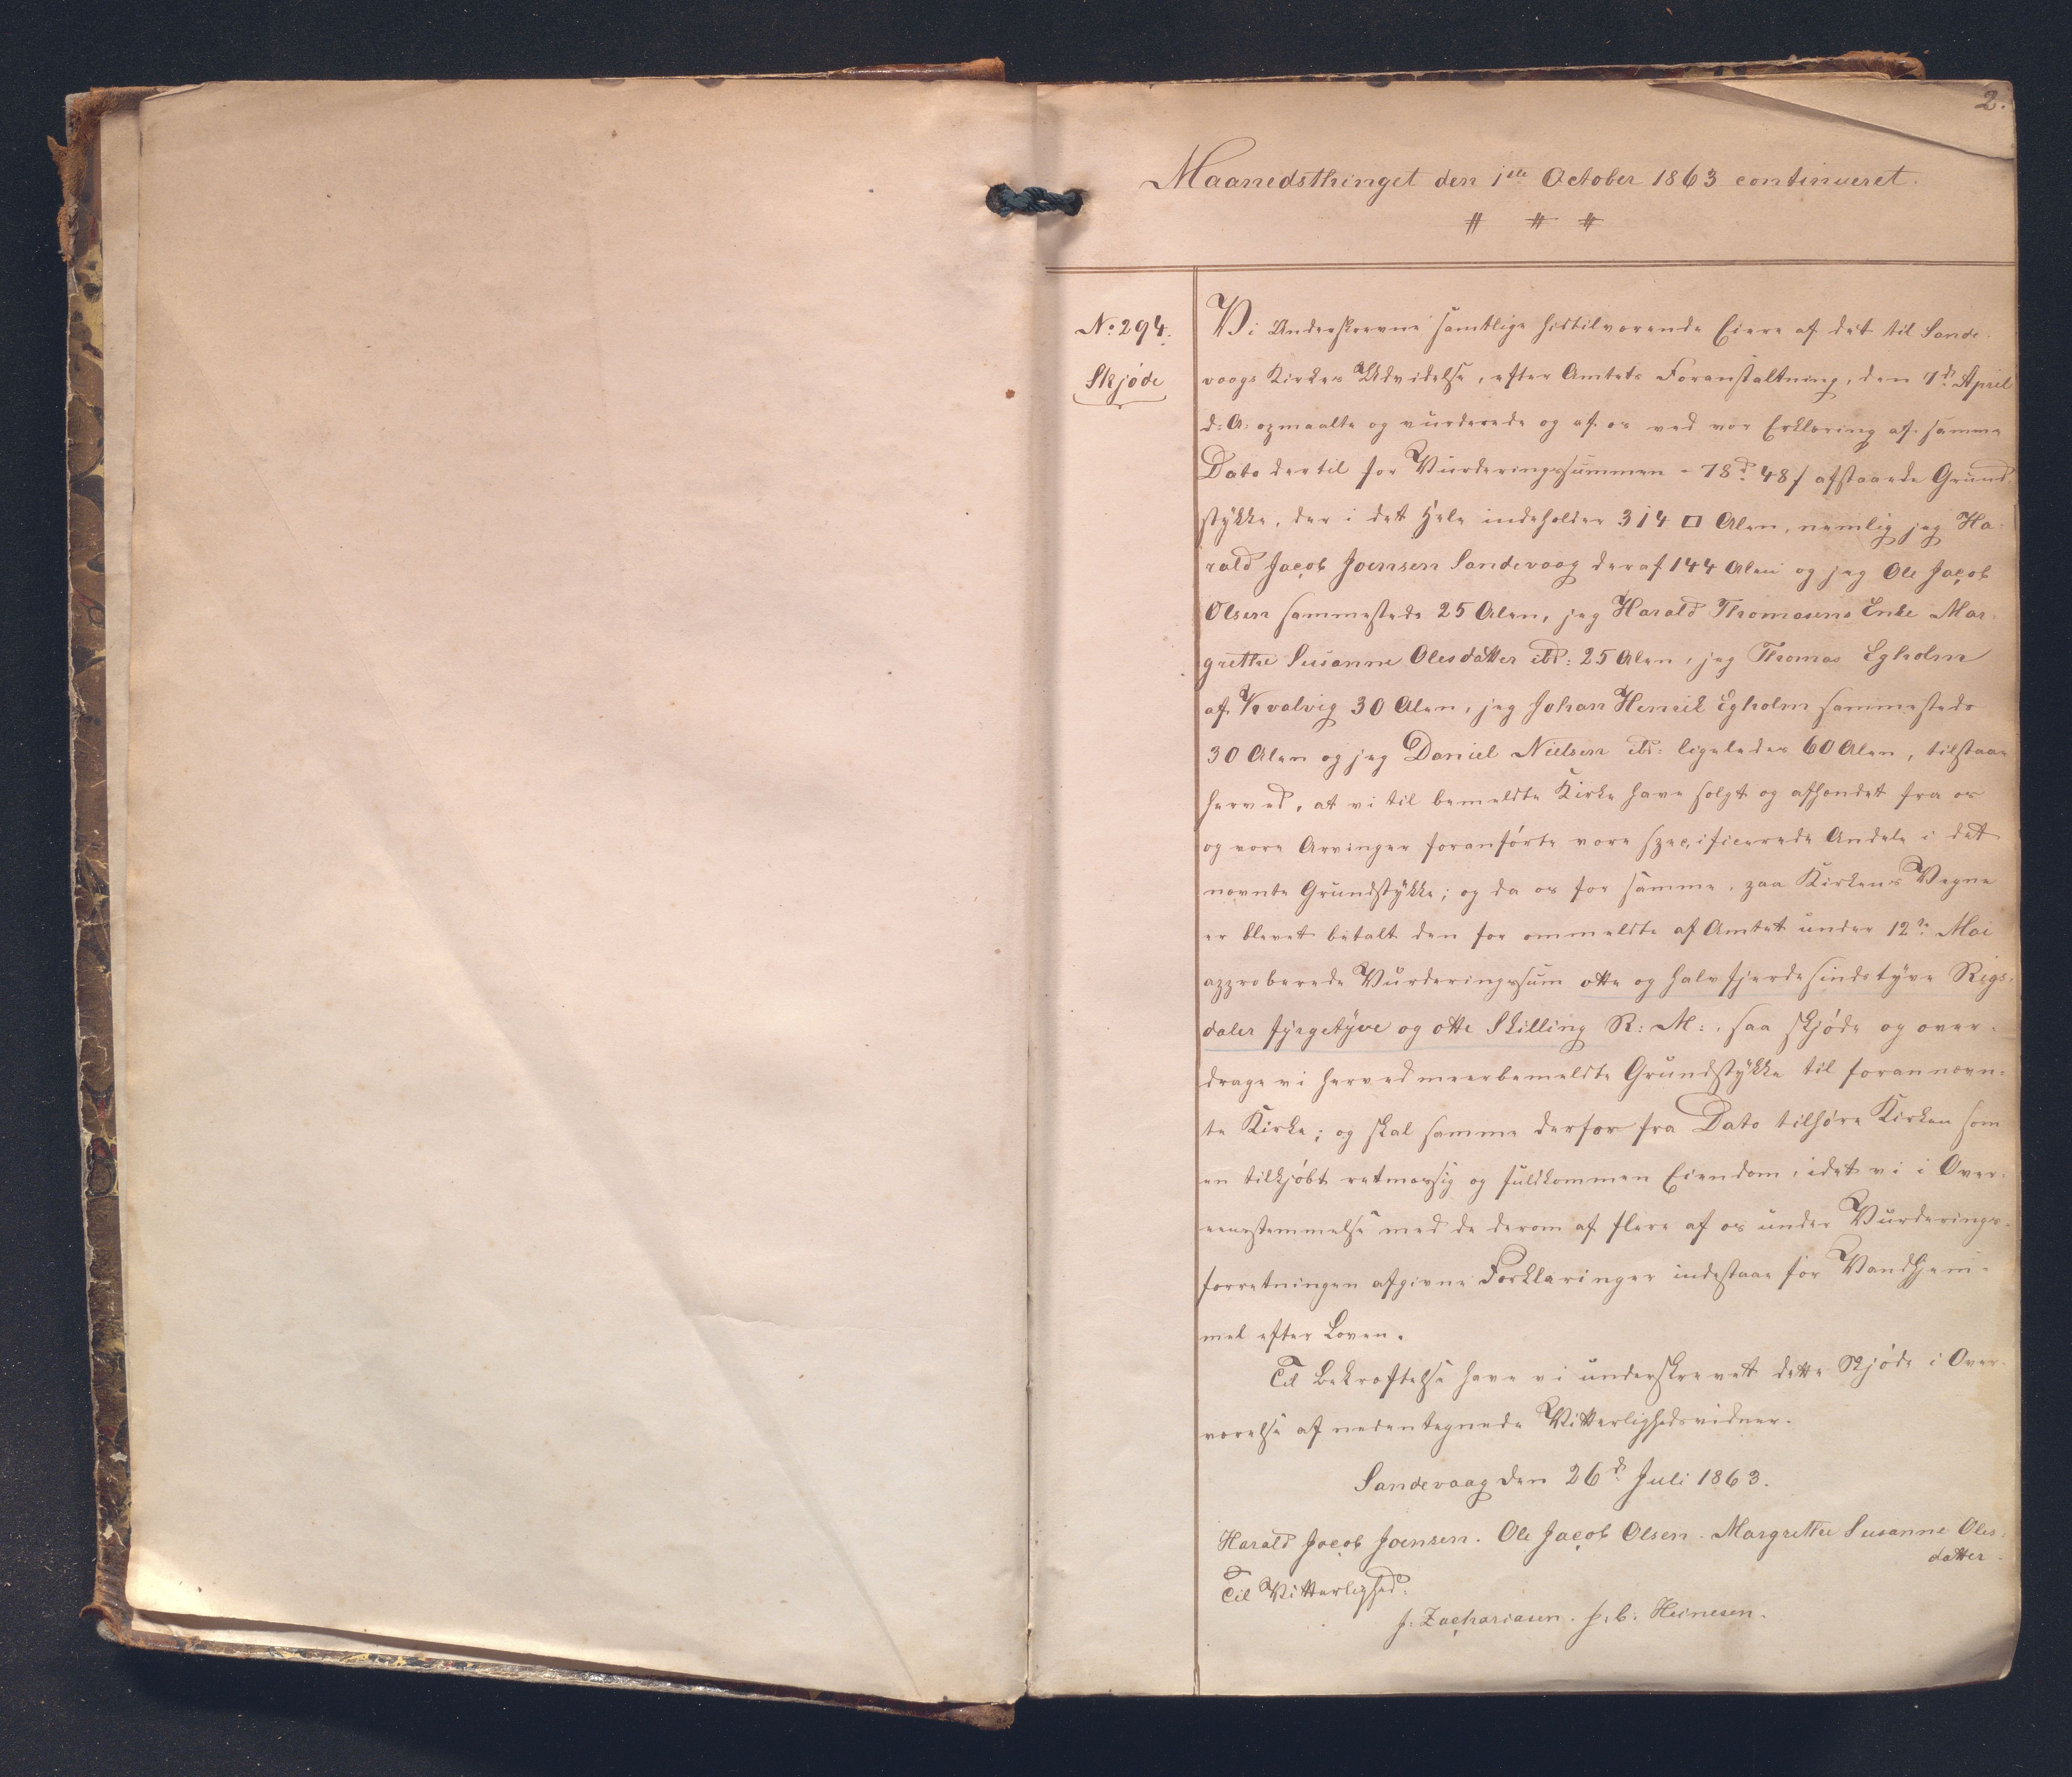 2.
Maanedsthinget den 1ste October 1863 continueret.
〃 〃 〃
No. 294.
Skjøde
Vi Underskrevne samtlige hidtilværende Eiere af det til Sande-
vaags Kirkes Udvidelse, efter Amtets Foranstaltning, den 7d. April
d: A: opmaalte og vurderede og af os ved vor Erklæring af samme
Dato dertil for Vurderingssummen - 78d. 48ſ afstaaede Grund
stykke, der i det Hele indeholder 314 □ Alen, nemlig jeg Ha-
rald Jacob Joensen Sandevaag deraf 144 Alen og jeg Ole Jacob
Olsen sammesteds 25 Alen, jeg Harald Thomasens Enke Mar-
grethe Susanne Olesdatter ibd: 25 Alen, jeg Thomas Egholm
af Kvalvig 30 Alen, jeg Johan Henrik Egholm sammesteds
30 Alen og jeg Daniel Nielsen ibd: ligeledes 60 Alen, tilstaae
herved, at vi til bemeldte Kirke have solgt og afhændet fra os
og vore Arvinger foranførte vore specificerede Andele i det
nævnte Grundstykke; og da os for samme, paa Kirkens Vegne
er blevet betalt den for ommeldte af Amtet under 12te Mai
approberede Vurderingssum otte og halvfjerdsindstyve Rigs-
daler fyrgetyve og otte Skilling R: M:, saa skjøde og over-
drage vi herved meerbemeldte Grundstykke til forannævn-
te Kirke; og skal samme derfor fra Dato tilhøre Kirken som
en tilkjøbt retmæssig og fuldkommen Eiendom, idet vi i Over-
eensstemmelse med de derom af flere af os under Vurderings-
forretningen afgivne Forklaringer indestaae for Vandhjem-
mel efter Loven.
Til Bekræftelse have vi underskrevet dette Skjøde i Over-
værelse af nedentegnede Vitterlighedsvidner.
Sandevaag den 26d. Juli 1863.
Harald Jacob Joensen. Ole Jacob Olsen. Margrethe Susanne Oles-
datter.
Til Vitterlighed:
J. Zachariasen. J. C. Heinesen.